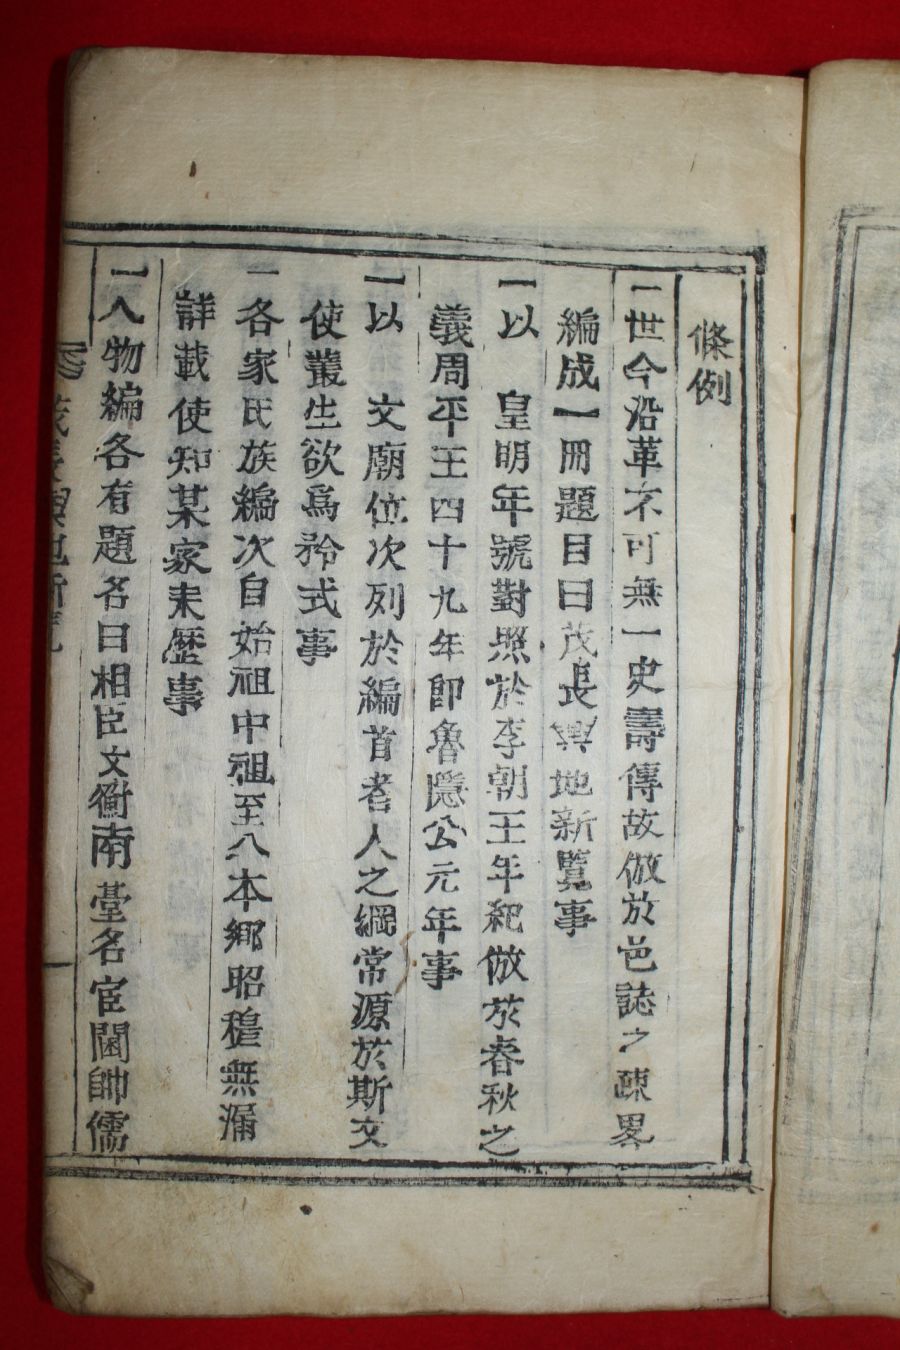 條例
一世今沿革不可無一史壽傳故倣於邑誌之疎畧
編成一冊題目曰茂長輿地新覽事
一以 皇明年號對照於李朝王年紀倣於春秋之
義周平王四十九年即魯隱公元年事
一以 文廟位次列於編首者人之綱常源於斯文
使叢生欲爲矜式事
一各家氏族編次自始祖中祖至八本鄉昭穆無漏
詳載使知某家來歷事
一人物編各有題名曰相臣文衡南臺名宦閫帥儒
茂長輿地新覽